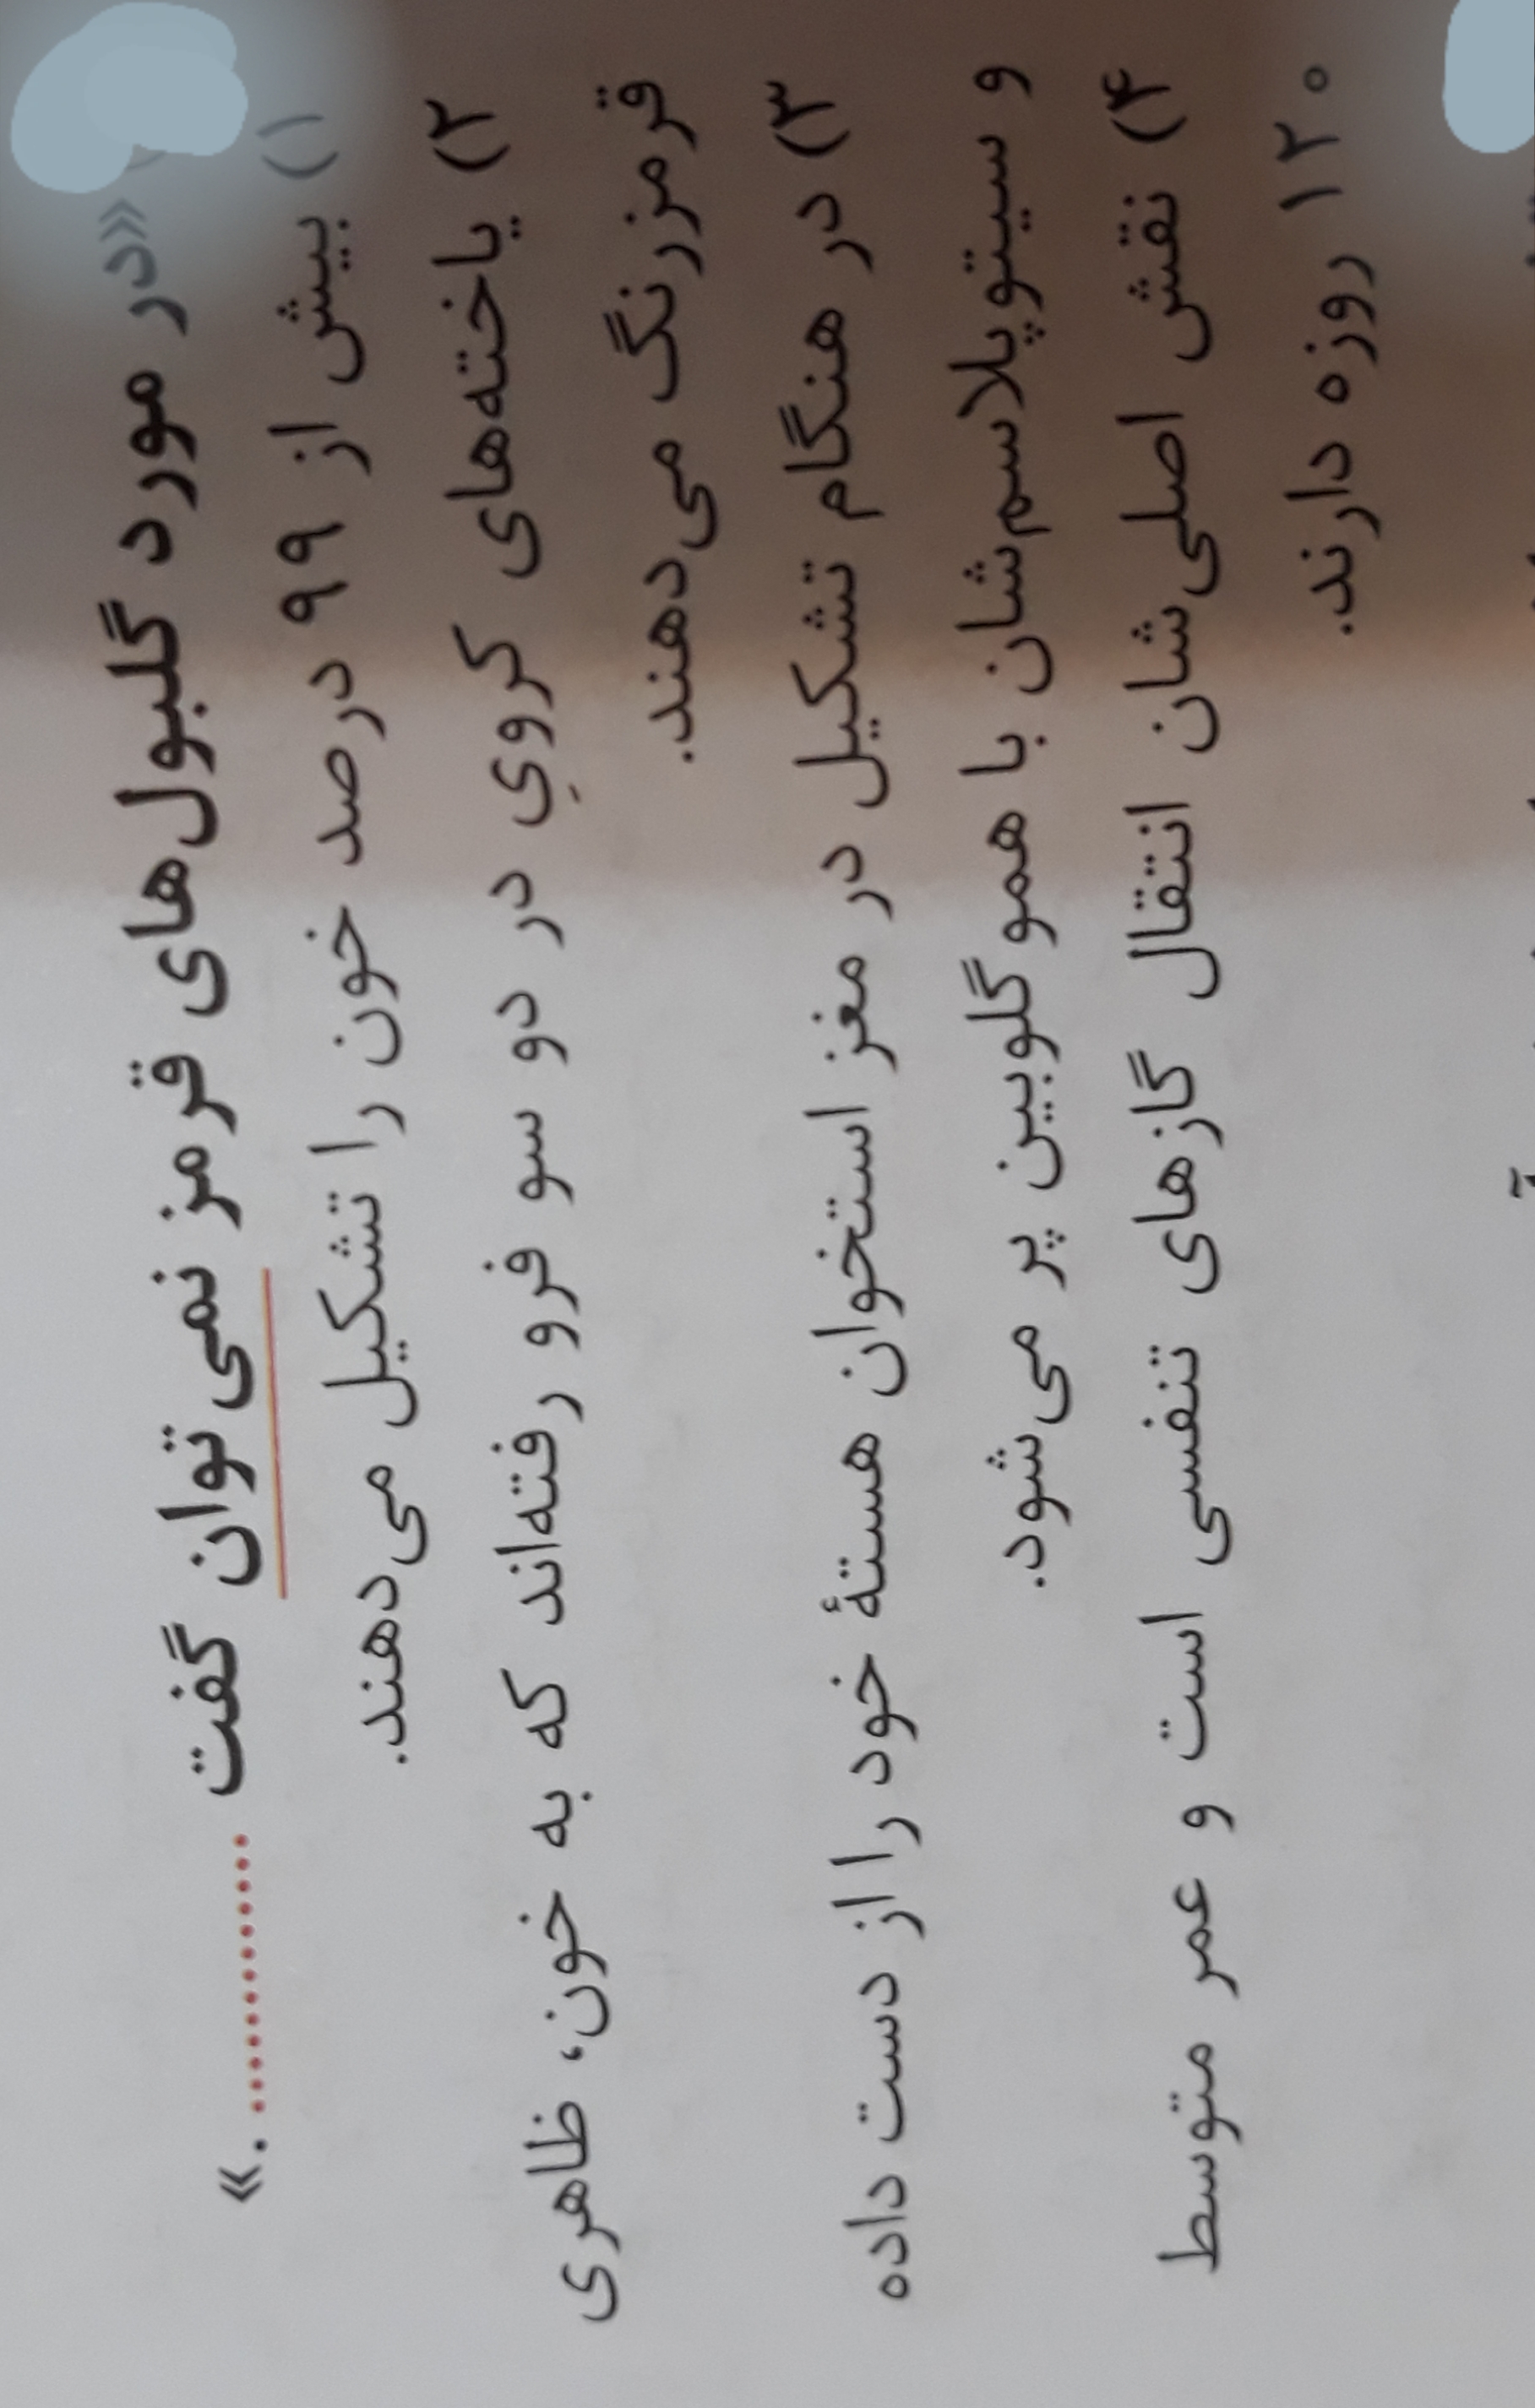 «در مورد گلبول‌های قرمز نمی‌توان گفت ............ .»
۱) بیش از ۹۹ درصد خون را تشکیل می‌دهند.
۲) یاخته‌های کرویِ در دو سو فرو رفته‌اند که به خون، ظاهری
قرمزرنگ می‌دهند.
۳) در هنگام تشکیل در مغز استخوان هستهٔ خود را از دست داده
و سیتوپلاسم‌شان با هموگلوبین پر می‌شود.
۴) نقش اصلی‌شان انتقال گازهای تنفسی است و عمر متوسط
۱۲۰ روزه دارند.